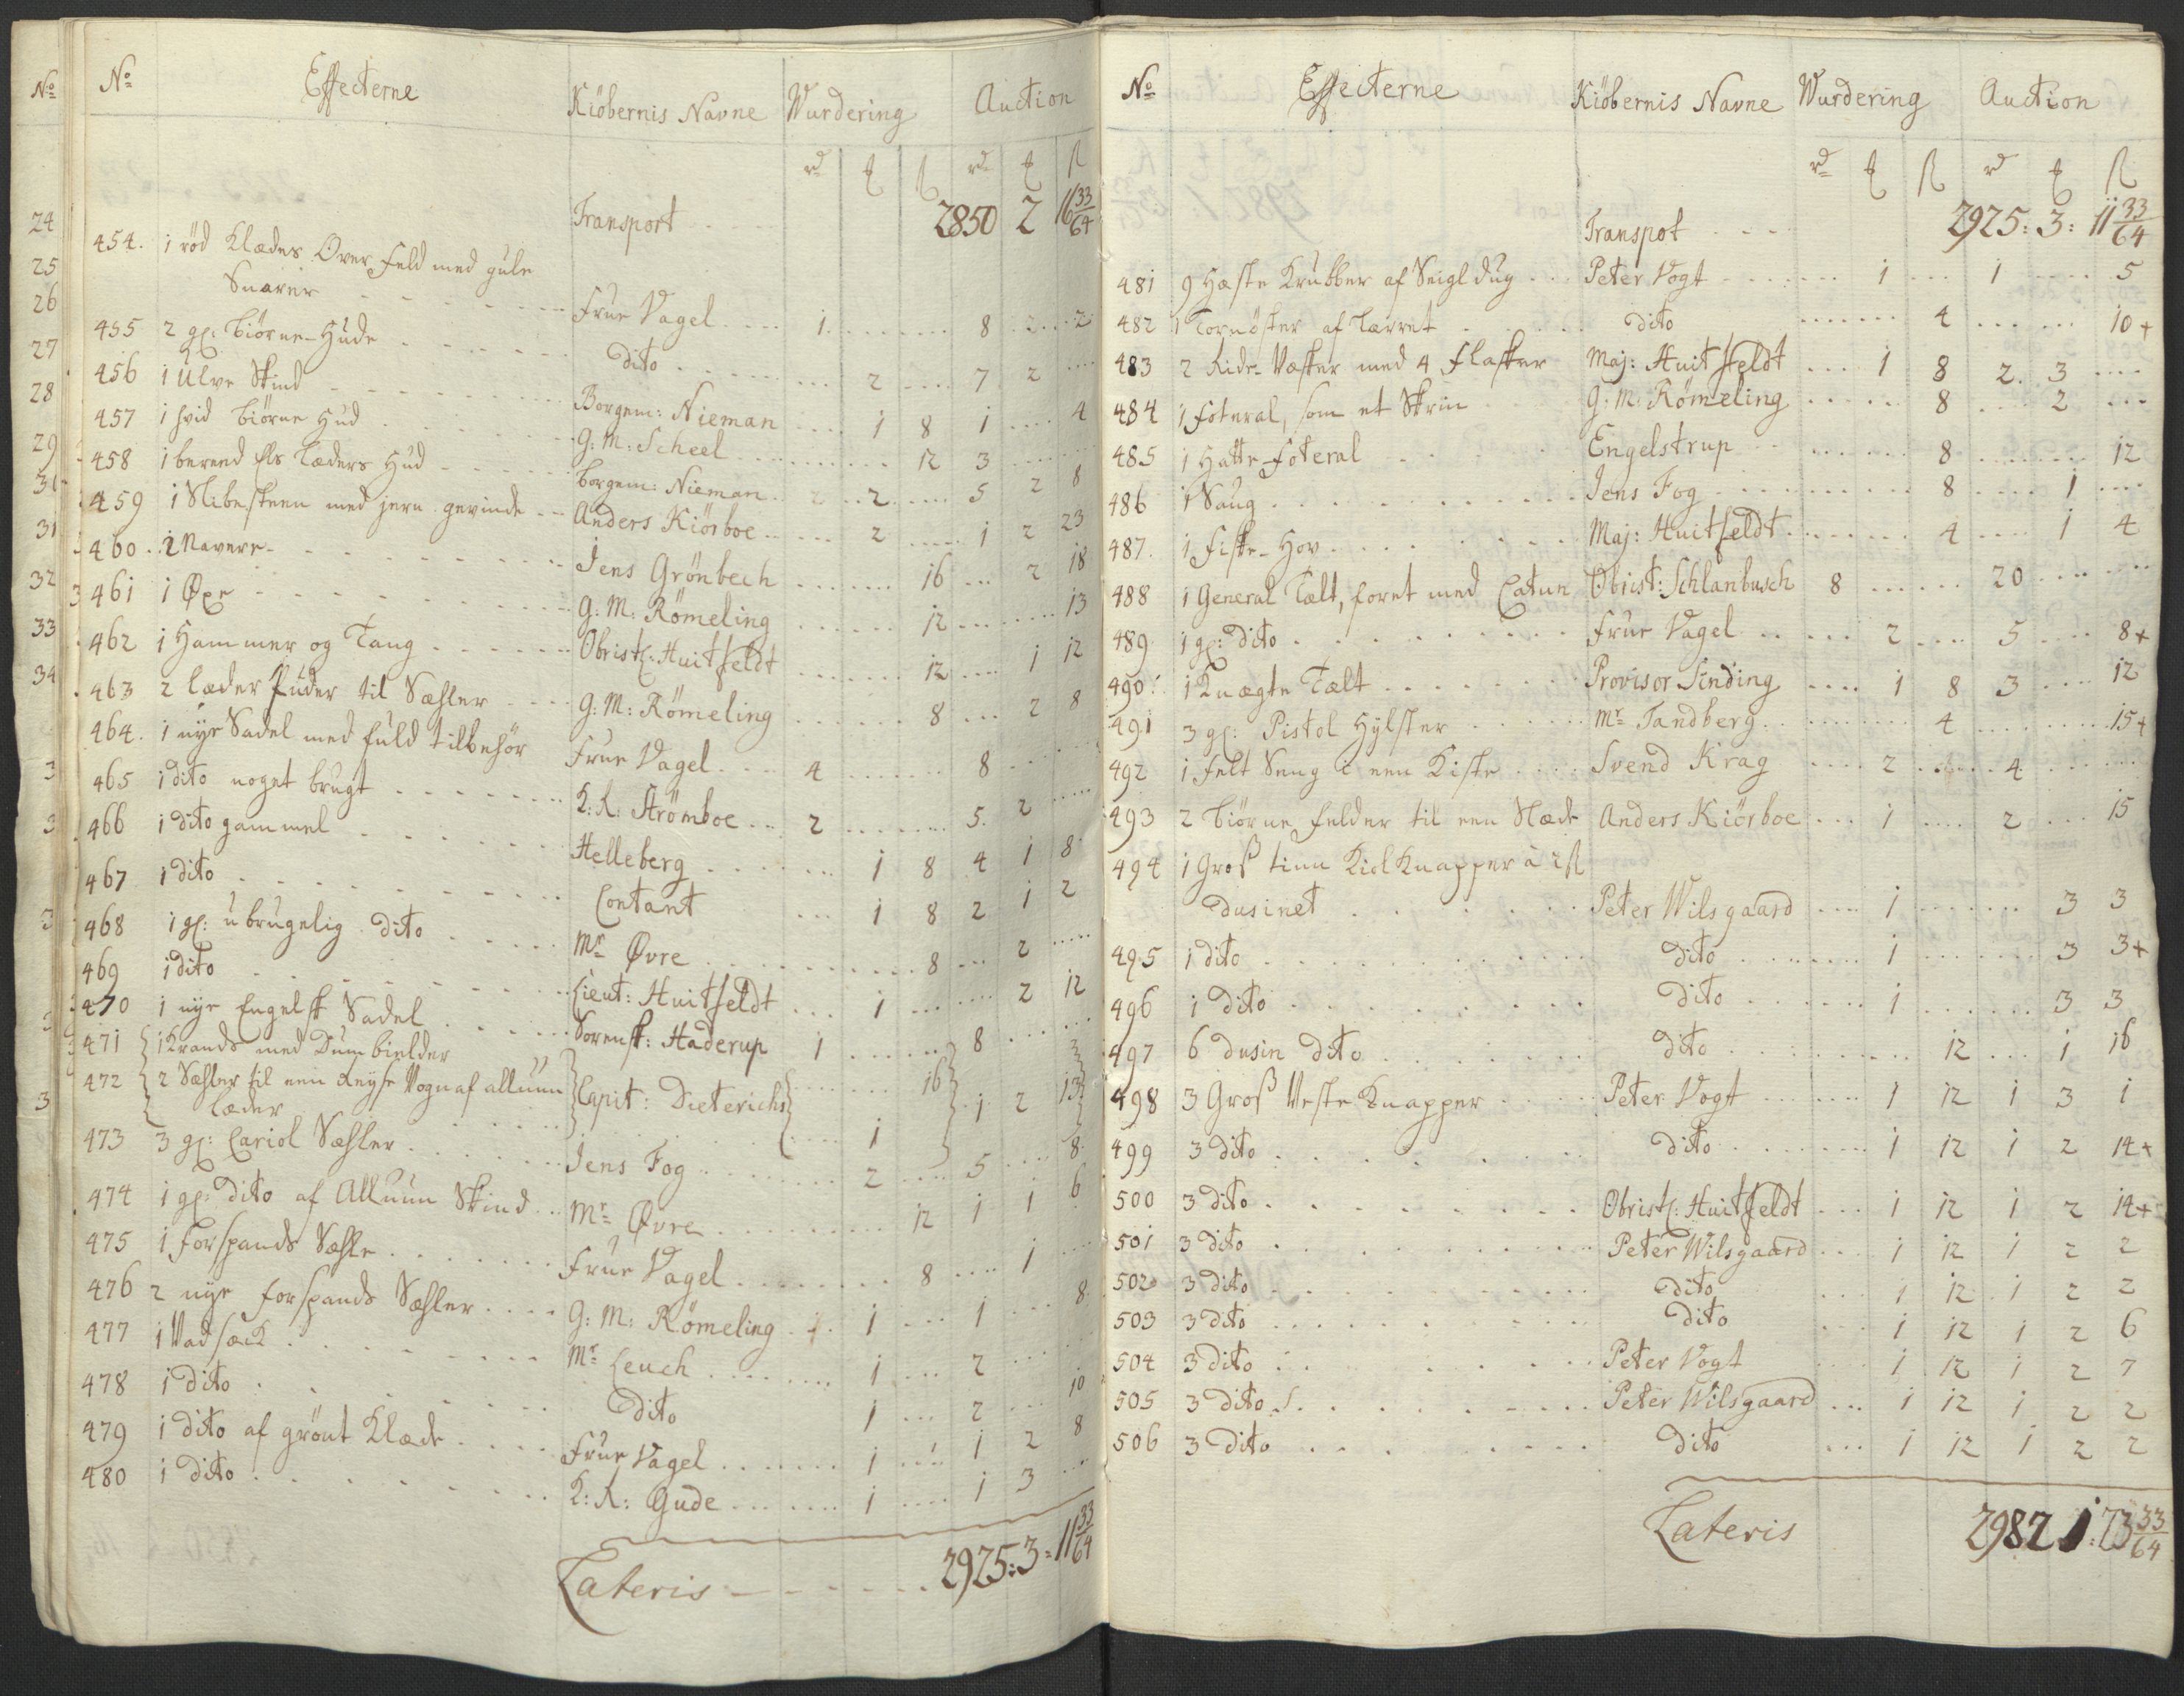 No Effecterne Kiöbernis Navne Wurdering Auction
rd ℔ ß rd ℔ ß
Transport . . 2850 2 16 33/64
454. 1 rød Klædes Over Feld med gule
Snorer - - - - Frue Vagel .... 1 ....... 8 . 2 ... 2
455 2 gl: Biørne-Hude - - - - dito ..... 2 .... 7 2 ....
456 1 Ulve Skind - - - - Borgem: Nieman .... 1 8 1 .... 4
457 1 hvid Biørne Hud . . . . G: M: Scheel ........ 12 3 ......
458 1 bereed Els Læders Hud - - - Borgem: Nieman .. 2 .. 2 .... 5 2 8
459 1 Slibesteen med jern gevinde - - Anders Kiörboe .... 2 ..... 1 2 23
460. 2 Navere - - - - Jens Grönbech ....... 16 ... 2 18
461 1 Øxe - - - - G: M: Römeling ...... 12 ....... 13
462 1 Hammer og Tang - - - - Obristl: Huitfeldt ...... 12 .... 1 12
463 2 læder Puder til Sæhler - - - G: M: Römeling ...... 8 ... 2 8
464. 1 nye Sadel med fuld tilbehör Frue Vagel .... 4 ...... 8 ....
465 1 dito noget brugt . . . . K: R: Strömboe ... 2 ....... 5. 2 .....
466 1 dito gammel - - - - Helleberg ...... 1 8 4 1 8
467 1 dito - - - - Contant ... 1 8 2 1 2
468 1 gl: ubrugelig dito . . . . Mr Øvre ........ 8 ... 2 .....
469 1 dito - - - - Lieut: Huitfeldt ... 1 ..... 2 12
470 1 nye Engelsk Sadel . . . . Sorensk: Haderup 1 ....... 8 ......
471 1 Krands med Dumbielder
472 2 Sæhler til een Reyse Vogn af alluun
læder Capit: Dieterichs ..... 16 . 1 2 13
1
473 3 gl: Cariol Sæhler . . . . Jens Fog ....... 2 .... 5 .... 8
474 1 gl: dito af Alluun Skind . . Mr Øvre ........ 12 1 1 6
475 1 Forspands Sæhle . . . . Frue Vagel ........ 8 .... 1 ....
476 2 nye Forspands Sæhler . . . . G: M: Römeling ... 1 ... 1 ... 8
477 1 Vadsæck . . . . Mr Leuch ....... 1 ... 2 ....
478 1 dito . . . . dito 1 ... 2 ... 10
479 1 dito af grönt Klæde . . . . Frue Vagel ....... 1 .... 1 2 8
480 1 dito . . . . K: R: Gude ....... 1 .... 1 3 ....
Lateris - - - - 2925:3=11 33/64
No Effecterne Kiöbernis Navne Wurdering Auction
rd ℔ ß rd ℔ ß
Transpot - - - 2925:3: 11 33/64
481 9 Hæste Krubber af Seigldug . . Peter Vogt ...... 1 ... 1 .... 5
482 1 Tornöster af Lærret . . . . dito ....... 4 ...... 10+
483 2 Ride-Væsker med 4 Flasker Maj: Huitfeldt ... 1 8 2. 3 ....
484 1 Foteral, som et Skrin . . . G: M: Römeling ..... 8 ... 2 ...
485 1 Hatte-Foteral . . . . Engelstrup ...... 8 ...... 12
486 1 Saug . . . . Jens Fog ......... 8 .... 1 ....
487. 1 Fiske-Hov . . . . Maj: Huitfeldt ........ 4 .... 1 4
488 1 General Telt, foret med Catun Obrist: Schlanbusch 8 ...... 20 ........
489 1 gl: dito . . . . Frue Vagel ..... 2 .... 5 .... 8+
490: 1 Knægte Telt . . . . Provisor Sinding .... 1 8 3 .... 12
491 3 gl: Pistol Hylster . . . . Mr Tandberg ........ 4 ........ 15+
492 1 Felt Seng i een Kiste . . . . Svend Krag .... 2 ..... 4 ......
493 2 Biørne Felder til een Slæde Anders Kiörboe ... 1 .... 2 ... 15
494 1 Gross tinn KiolKnapper à 2ß
dusinet . . . . Peter Wilsgaard .... 1 ...... 3 3
495 1 dito . . . . dito ....... 1 ....... 3 3+
496 1 dito . . . . dito ....... 1 ....... 3 3
497 6 dusin dito . . . . dito ......... 12 ... 1 16
498 3 Gross Veste Knapper . . . . Peter Vogt ...... 1 12 1 3 1
499 3 dito . . . . dito ....... 1 12 1 2 14+
500 3 dito . . . . Obristl: Huitfeldt ... 1 12 1 2 14+
501 3 dito . . . . Peter Wilsgaard ... 1 12 1 2 2
502 3 dito . . . . dito ... 1 12 1 2 2
503 3 dito . . . . dito ... 1 12 1 2 6
504 3 dito . . . . Peter Vogt ... 1 12 1 2 7
505 3 dito . . . . Peter Wilsgaard ... 1 12 1 2 2
506 3 dito . . . . dito ... 1 12 1 2 2
Lateris 2982 1:23 33/64